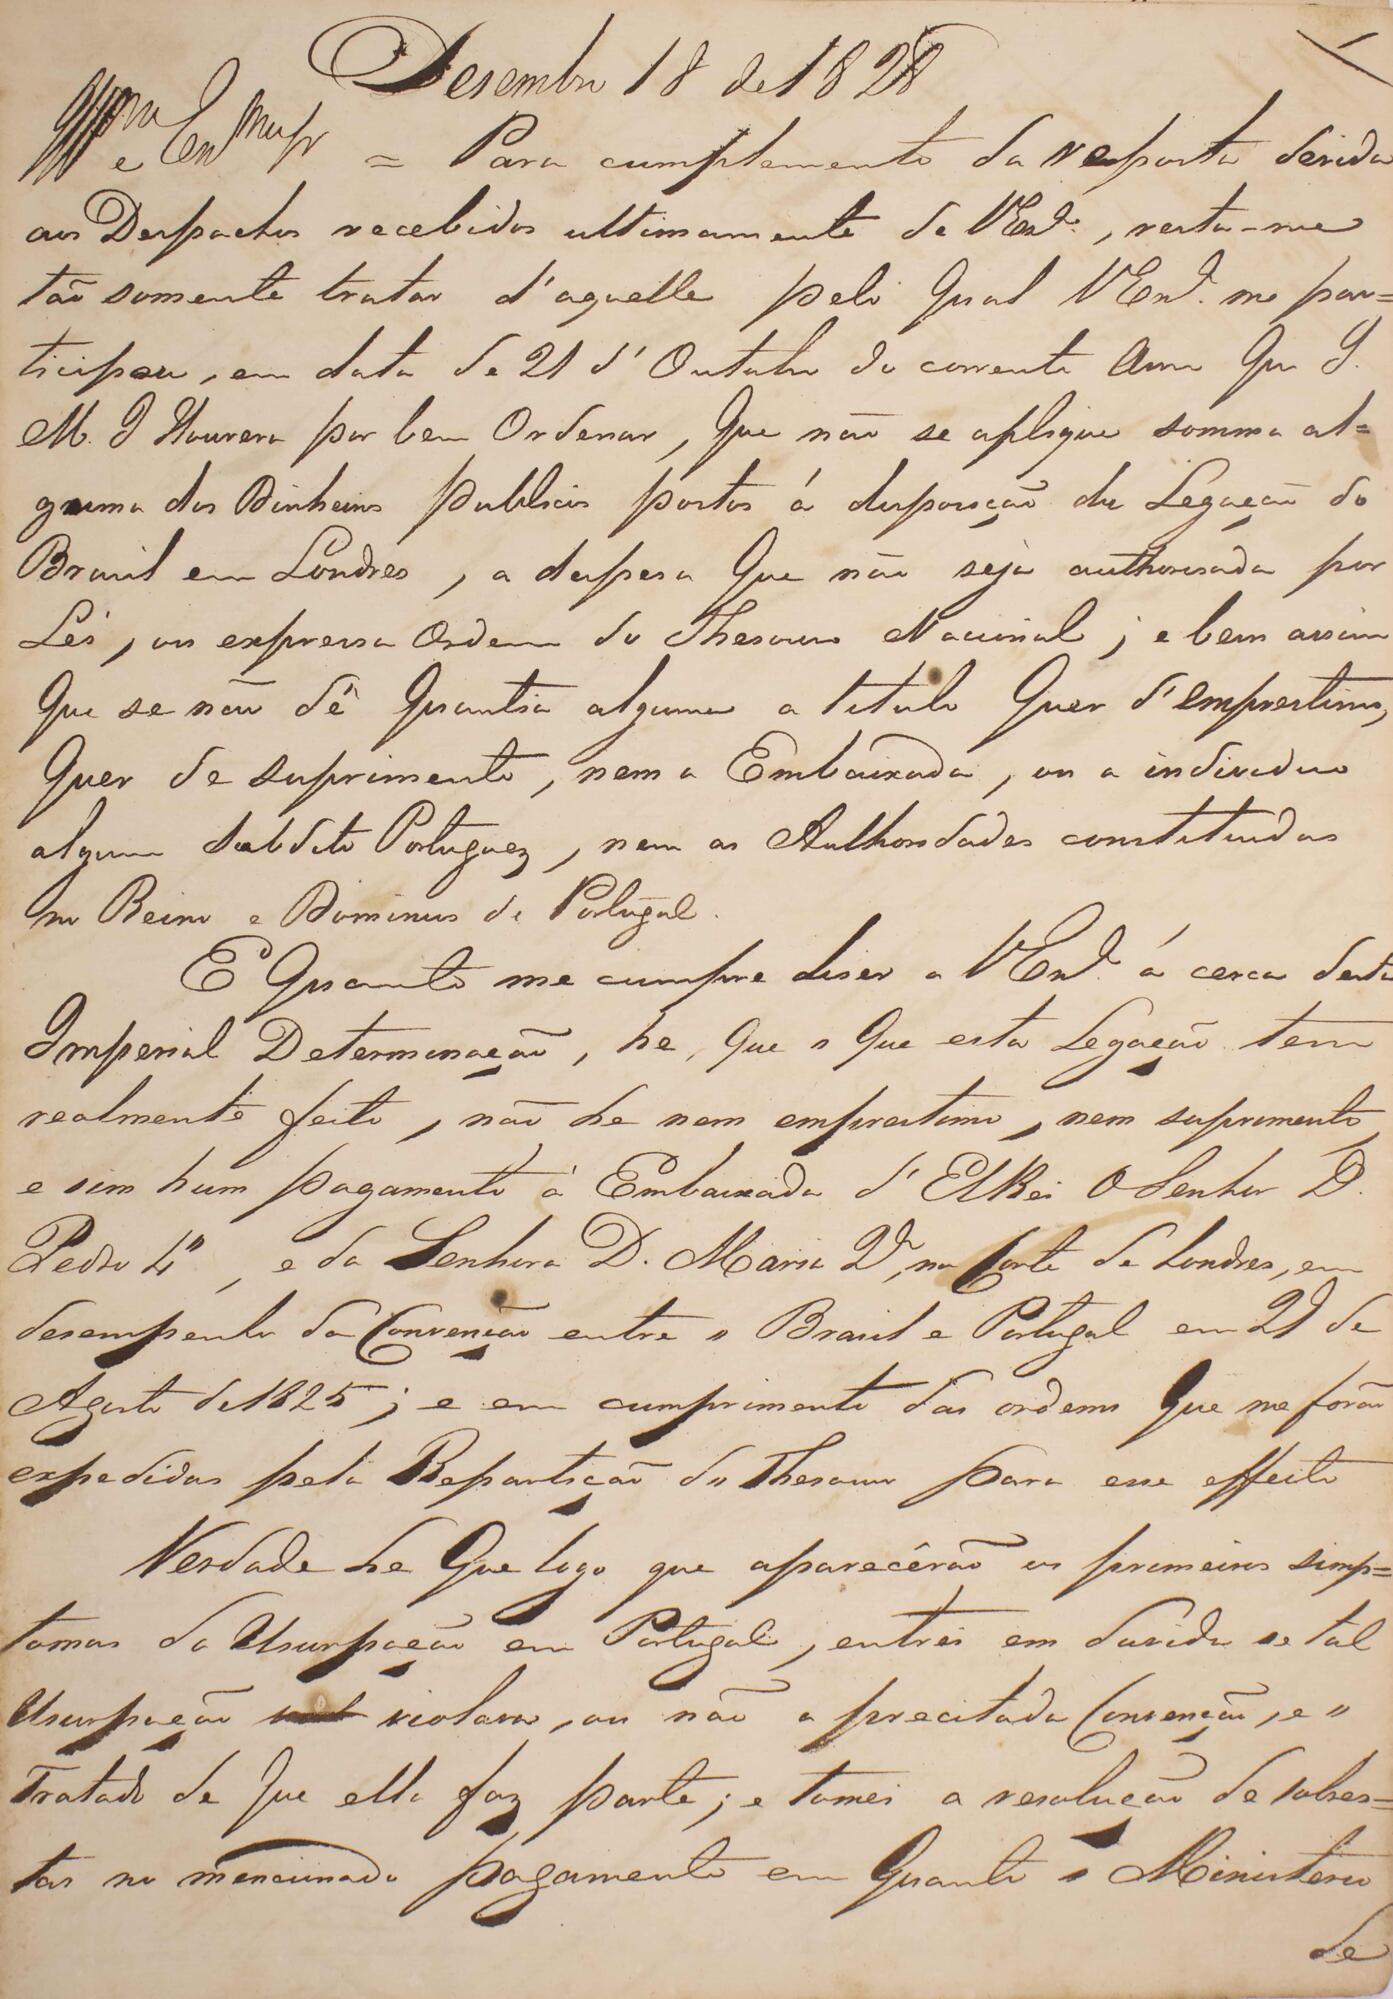 Desembro 18 de 1828
Illmo e Exmo Snr = Para cumplemento da resposta devida
aos Despachos recebidos ultimamente de VExa., resta-me
tão somente tratar d'aquelle pelo qual VExa. me par=
ticipou, em data de 21 d'Outubro do corrente Anno Que S.
M. I Houvera por bem Ordenar, Que não se aplique somma al=
guma dos Dinheiros publicos postos á disposição da Legação do
Brasil em Londres, a despesa Que não seja authorisada por
Lei, ou expressa Ordem do Thesouro Nacional; e bem assim
Que se não dê Quantia alguma a titulo Quer d'emprestimo,
Quer de suprimento, nem a Embaixada, ou a individuo
algum subdito Portuguez, nem as Authoridades constituidas
no Reino e Dominios de Portugal.
E Quanto me cumpre diser a VExa. á cerca desta
Imperial Determinação, he, que o Que esta Legação tem
realmente feito, não he nem emprestimo, nem suprimento,
e sim hum pagamento á Embaixada d'ElRei O Senhor D.
Pedro 4º, e da Senhora D. Maria 2ª, na Corte de Londres, em
desempenho da Convenção entre o Brasil e Portugal em 29 de
Agosto de 1825; e em cumprimento das ordens Que me forão
expedidas pela Repartição do Thesouro para esse effeito
Verdade he Que logo que aparecêrão os primeiros simp=
tomas da Usurpação em Portugal, entrei em duvida se tal
Usurpação violava, ou não a precitada Convenção, e o
Tratado de Que ella faz parte; e tomei a resolução de sobres=
tar no mencionado pagamento em Quanto o Ministerio
de